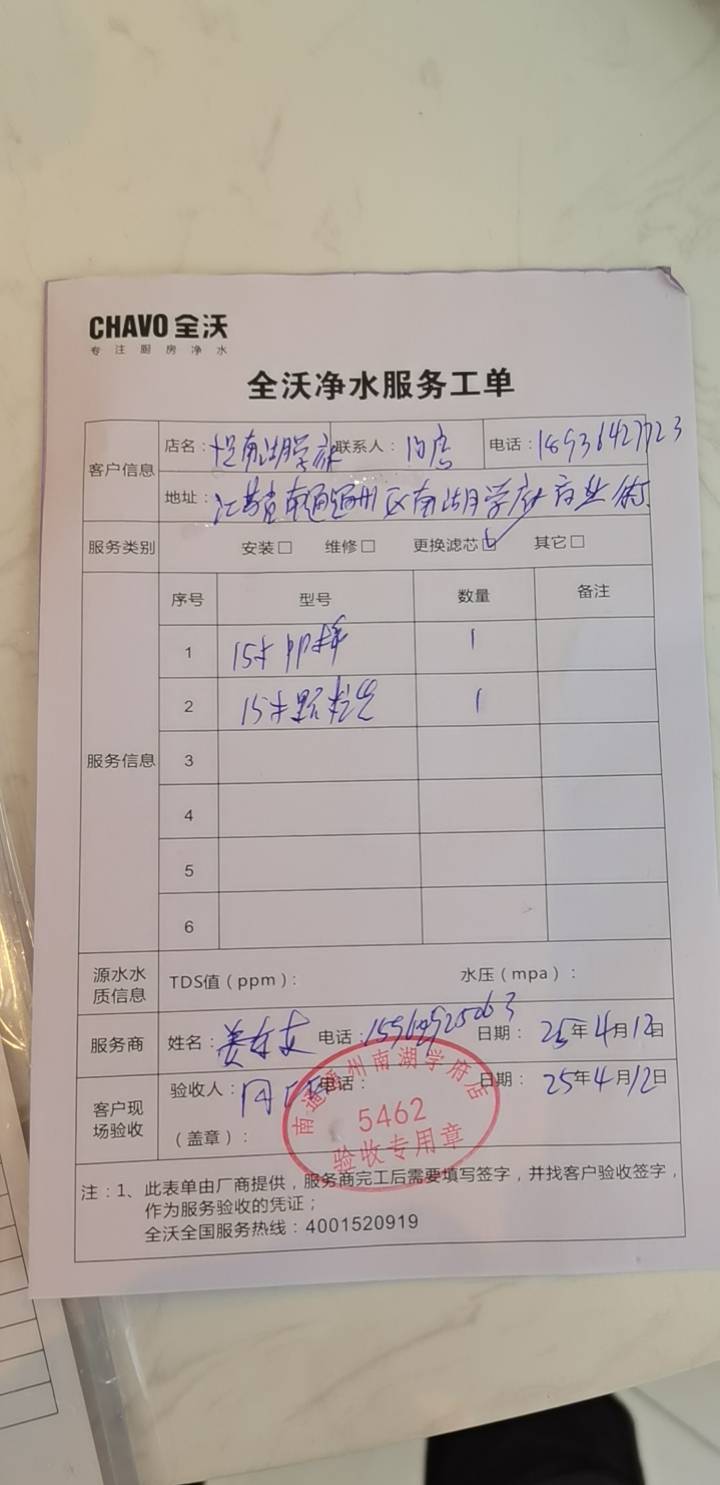 CHAVO 全沃
专注厨房净水
全沃净水服务工单
客户信息
店名：南湖学府 联系人： 电话：18936427723
地址：江苏省南通通州区南湖学府商业街
服务类别 安装□ 维修□ 更换滤芯☑ 其它□
服务信息
序号 型号 数量 备注
1 15寸PP棉 1
2 15寸颗粒炭 1
3
4
5
6
源水水质信息 TDS值（ppm）： 水压（mpa）：
服务商 姓名： 电话： 日期：25年4月12日
客户现场验收 验收人： 电话： 日期：25年4月12日
（盖章）：
南通通州南湖学府店
5462
验收专用章
注：1、此表单由厂商提供，服务商完工后需要填写签字，并找客户验收签字，
作为服务验收的凭证；
全沃全国服务热线：4001520919